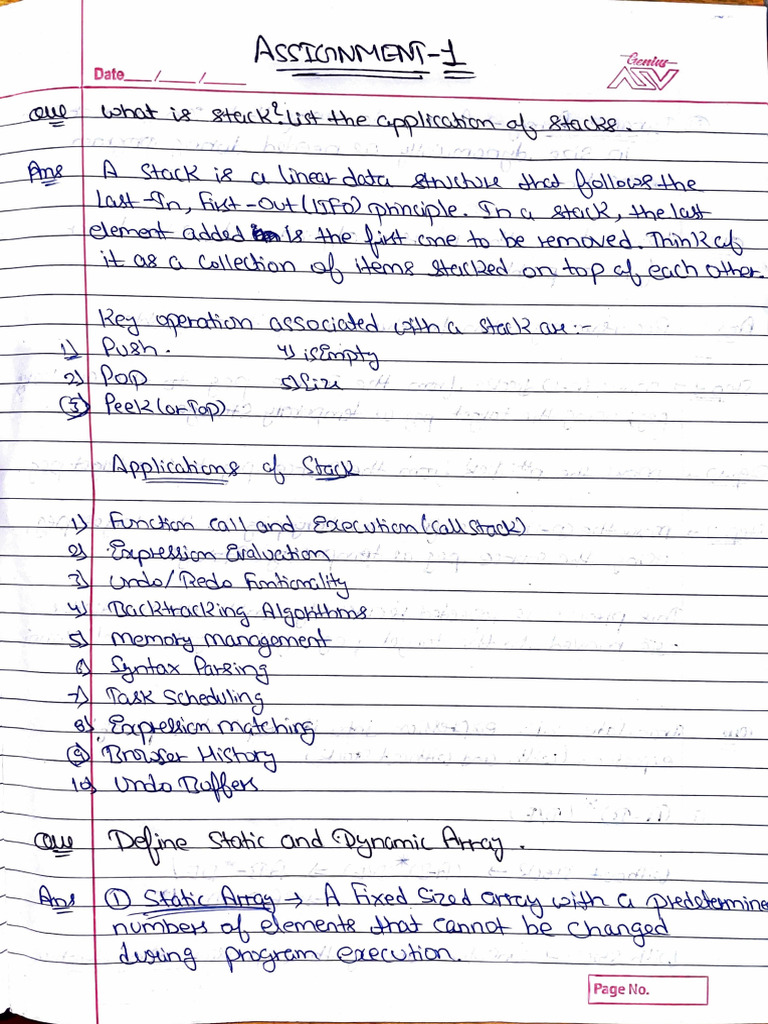 ASSIGNMENT-1
Date___/___/___
Genius
Que What is stack? list the application of stacks.
Ans A stack is a linear data structure that follows the
last-In, First-Out (LIFO) principle. In a stack, the last
element added is the first one to be removed. Think of
it as a collection of items stacked on top of each other.
Key operation associated with a stack are:-
1) Push. 4) isEmpty
2) POP 5) Size
(3) Peek (or Top)
Applications of Stack
1) Function call and Execution (call stack)
2) Expression Evaluation
3) Undo/Redo Funtionality
4) Backtracking Algorithms
5) Memory management
6) Syntax Parsing
7) Task Scheduling
8) Expression matching
(9) Browser History
10) Undo Buffers
Que Define Static and Dynamic Array.
Ans ① Static Array → A Fixed Sized array with a predetermine
numbers of elements that cannot be changed
during program execution.
Page No.